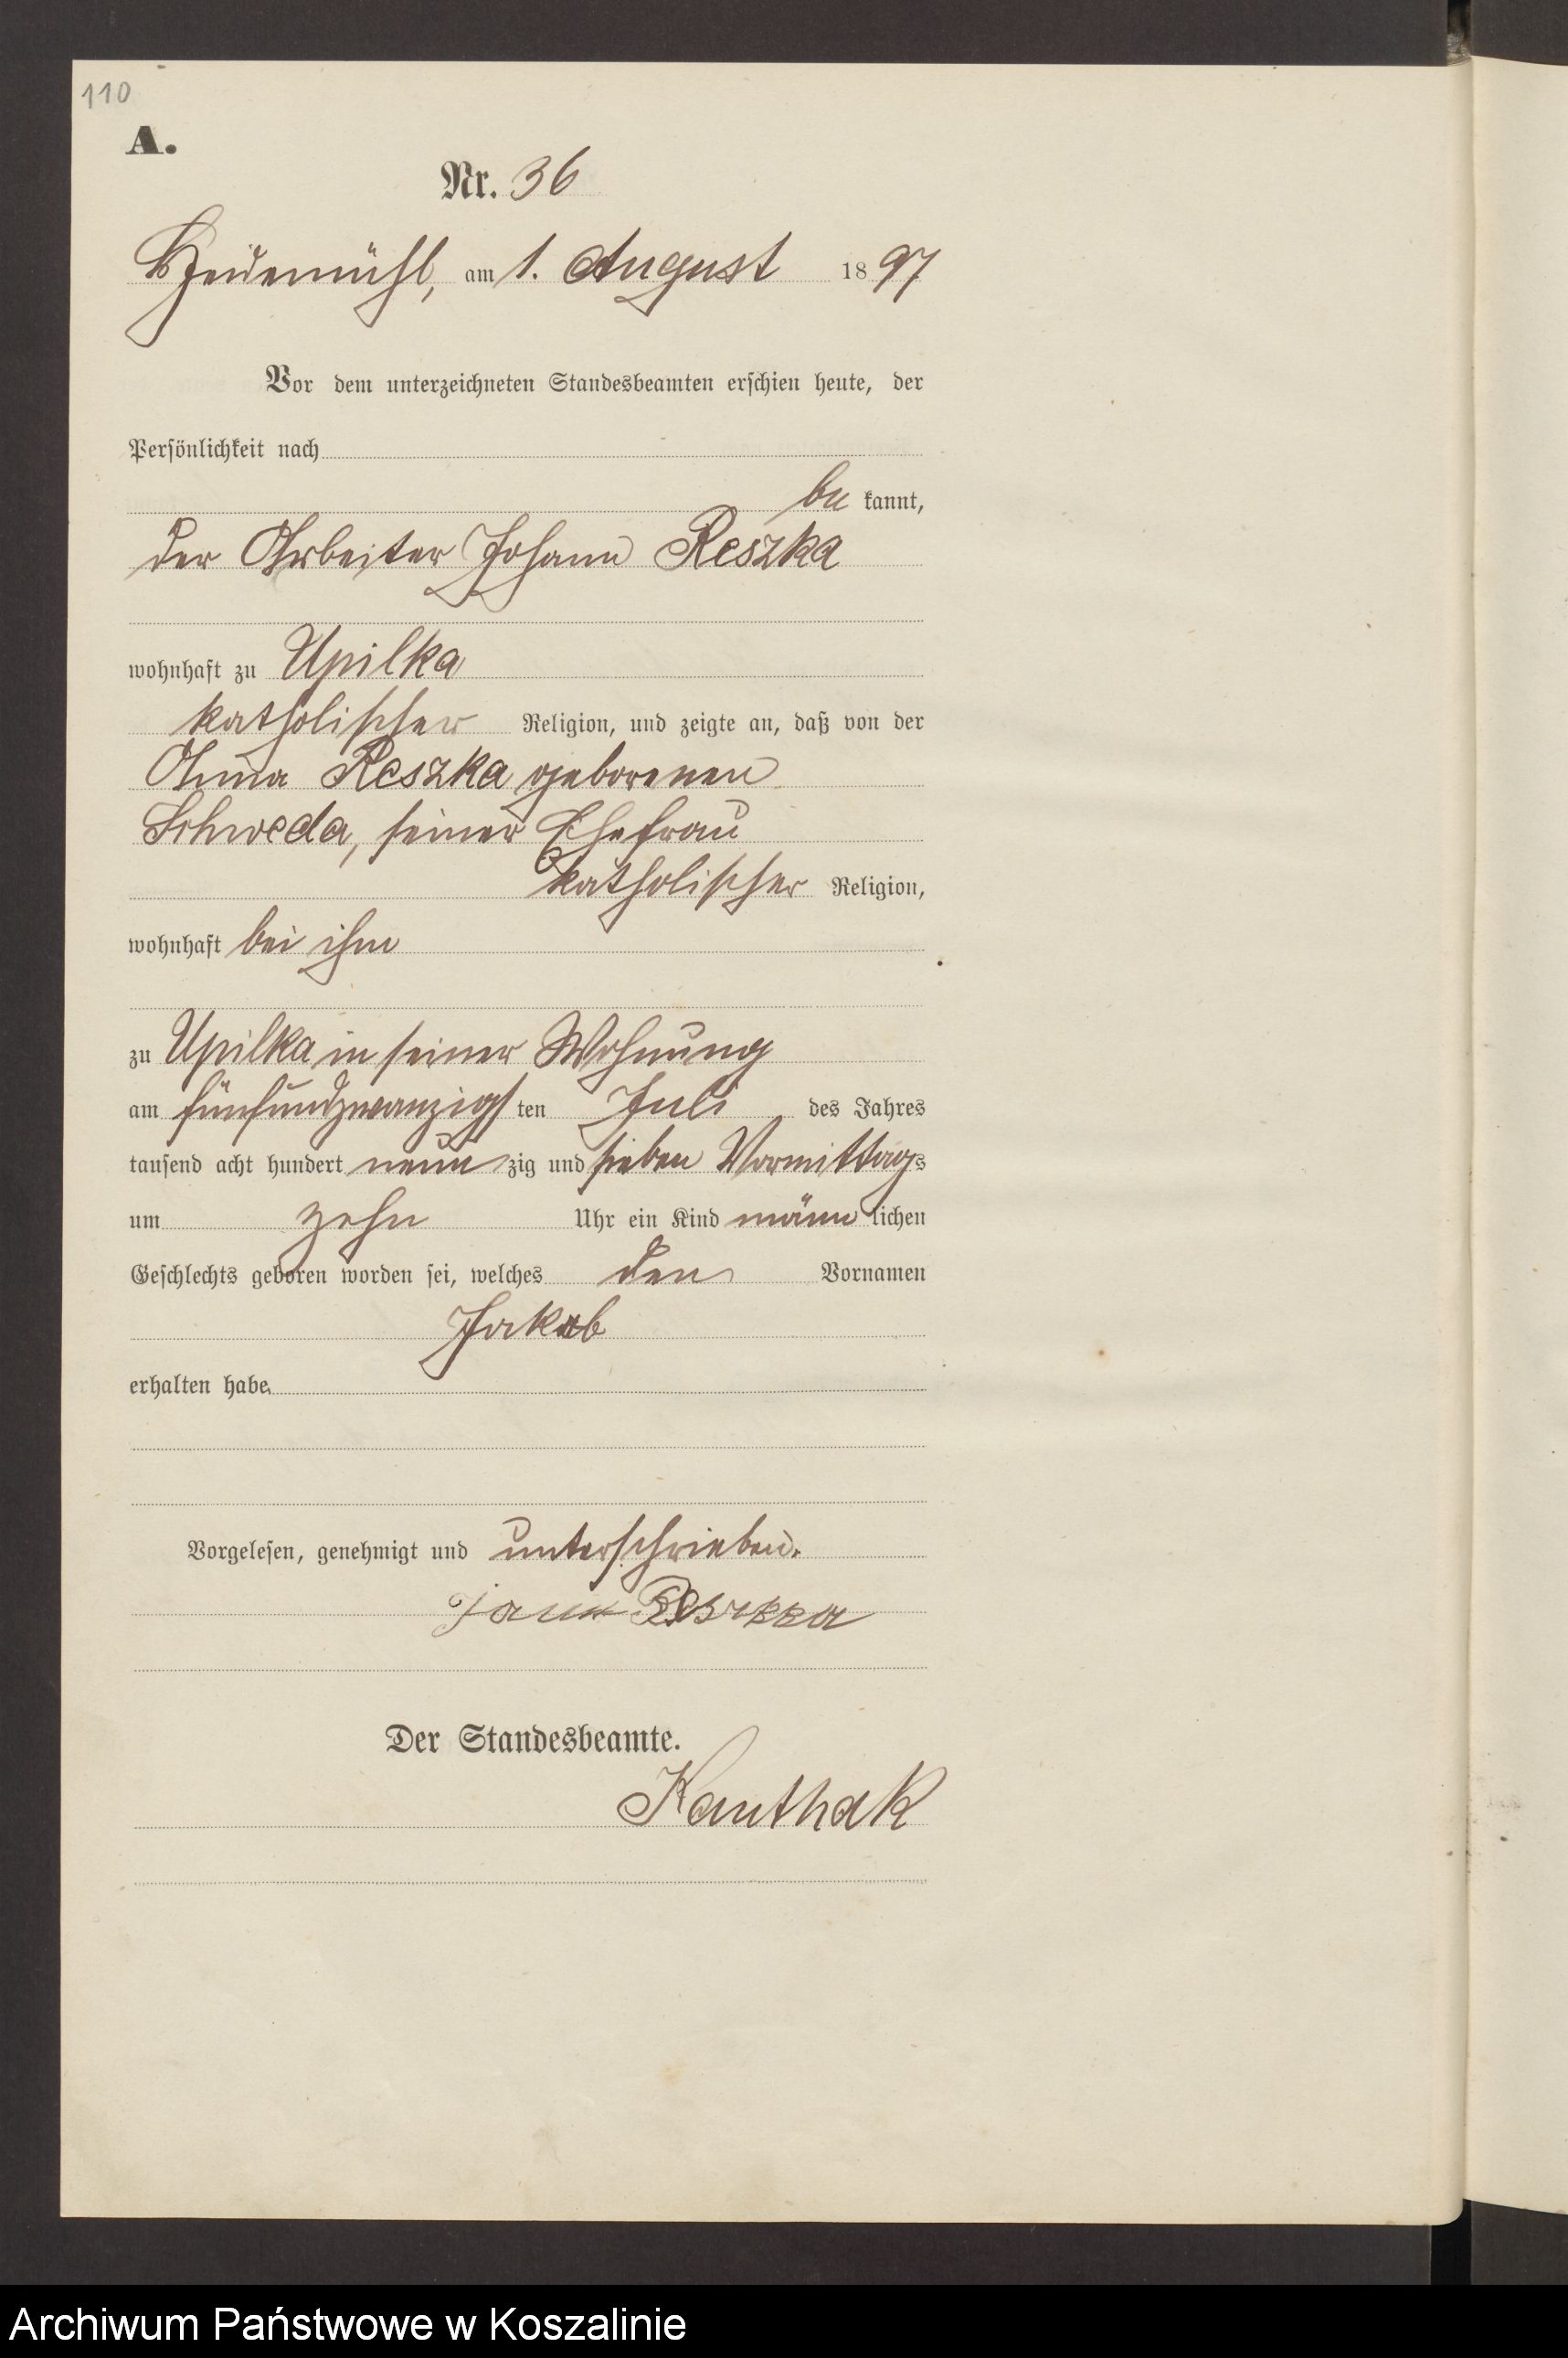 110
A.
Nr. 36
Heidemühl, am 1. August 1897
Vor dem unterzeichneten Standesbeamten erschien heute, der
Persönlichkeit nach
be kannt,
der Arbeiter Johann Reszka
wohnhaft zu Upilka
katholischer Religion, und zeigte an, daß von der
Anna Reszka geborenen
Schweda, seiner Ehefrau
katholischer Religion,
wohnhaft bei ihm
zu Upilka in seiner Wohnung
am fünfundzwanzigsten Juli des Jahres
tausend acht hundert neunzig und sieben Vormittags
um zehn Uhr ein Kind männlichen
Geschlechts geboren worden sei, welches den Vornamen
Jakob
erhalten habe
Vorgelesen, genehmigt und unterschrieben.
Der Standesbeamte.
Kauthak
Archiwum Państwowe w Koszalinie